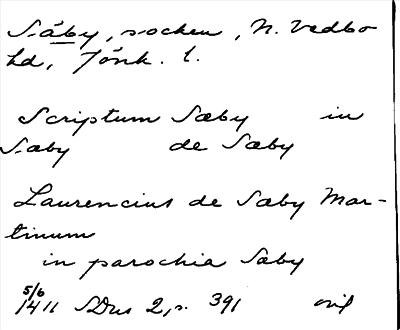 Säby, socken, N. Vedbo
hd, Jönk. l.
Scriptum Sæby in
Sæby de Sæby
Laurencius de Sæby Mar-
tinum
in parochia Sæby
5/6 1411 SDns 2, s. 391 avil